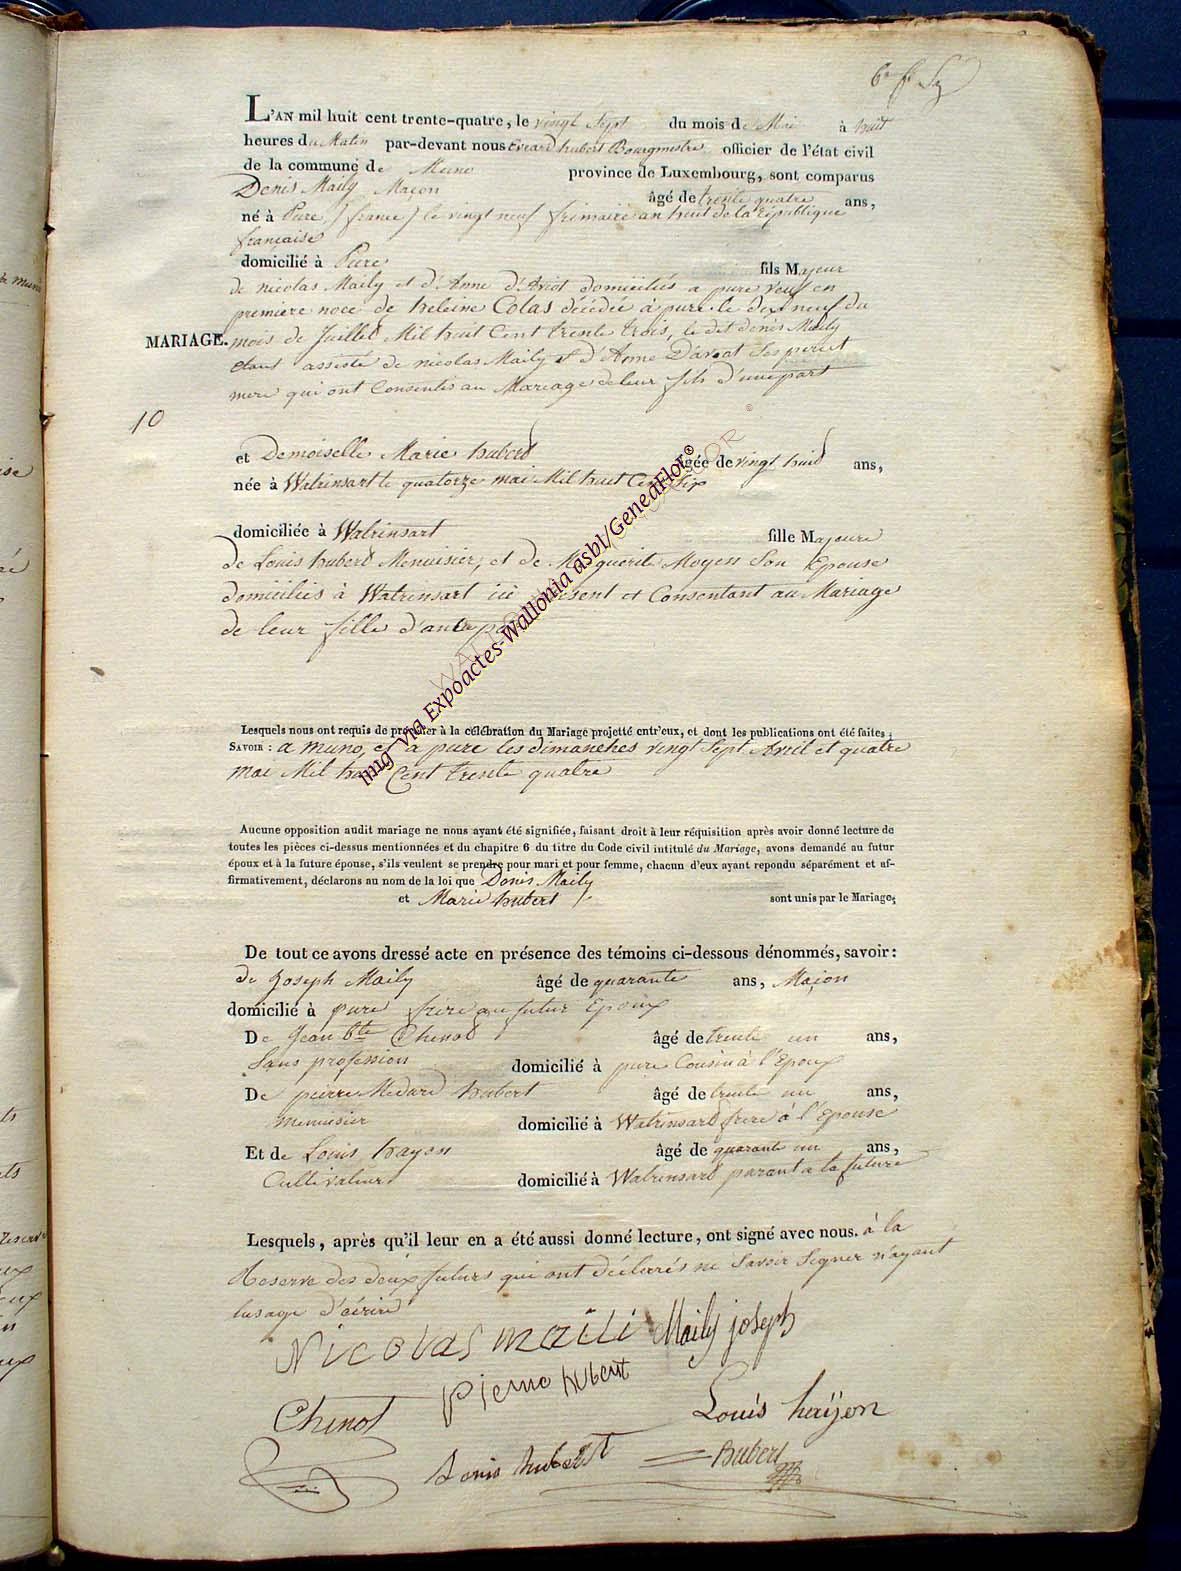 L'AN mil huit cent trente-quatre, le vingt Sept du mois de Mai à huit
heures du Matin par-devant nous Evrard hubert Bourgmestre officier de l'état civil
de la commune de Muno province de Luxembourg, sont comparus
Denis Maily Maçon âgé de trente quatre ans,
né à Pure (france) le vingt neuf frimaire an huit de la république
française
domicilié à Pure fils Majeur
de nicolas Maily et d'Anne d'Aviot domiciliés a pure veuf en
premiere noce de heleine Colas décédée à pure le dix neuf du
MARIAGE. mois de Juillet Mil huit Cent trente trois, le dit dénis Maily
étant assisté de nicolas Maily et d'Anne Daviot Ses peret
mere qui ont Consentis au Mariage de leur fils d'une part
10
et Demoiselle Marie hubert âgée de vingt huit ans,
née à Watrinsart le quatorze mai Mil huit Cent Six
domiciliée à Watrinsart fille Majeure
de Louis hubert Menuisier, et de Marguerite Moyen Son Epouse
domiciliés à Watrinsart ici présent et Consentant au Mariage
de leur fille d'autre part
Lesquels nous ont requis de procéder à la célébration du Mariage projetté entr'eux, et dont les publications ont été faites;
SAVOIR : a muno, et a pure les dimanches vingt Sept Avril et quatre
mai Mil huit Cent trente quatre
Aucune opposition audit mariage ne nous ayant été signifiée, faisant droit à leur réquisition après avoir donné lecture de
toutes les pièces ci-dessus mentionnées et du chapitre 6 du titre du Code civil intitulé du Mariage, avons demandé au futur
époux et à la future épouse, s'ils veulent se prendre pour mari et pour femme, chacun d'eux ayant repondu séparément et af-
firmativement, déclarons au nom de la loi que Denis Maily
et Marie hubert sont unis par le Mariage;
De tout ce avons dressé acte en présence des témoins ci-dessous dénommés, savoir:
de Joseph Maily âgé de quarante ans, Maçon
domicilié à pure frere au futur Epoux
De Jean bte Chenot âgé de trente un ans,
Sans profession domicilié à pure Cousin à l'Epoux
De pierre Medard hubert âgé de trente un ans,
menuisier domicilié à Watrinsart frere à l'Epouse
Et de Louis hayon âgé de quarante un ans,
Cultivateur domicilié à Watrinsart parant a la future
Lesquels, après qu'il leur en a été aussi donné lecture, ont signé avec nous. à la
Reserve des deux futurs qui ont déclarés ne Savoir Signer n'ayant
lusage d'écrire
Nicolas maili Maily joseph
pierre hubert
Chenot Louis haÿon
Louis hubert Hubert
img via Expoactes-Wallonia asbl/GeneaFlor®